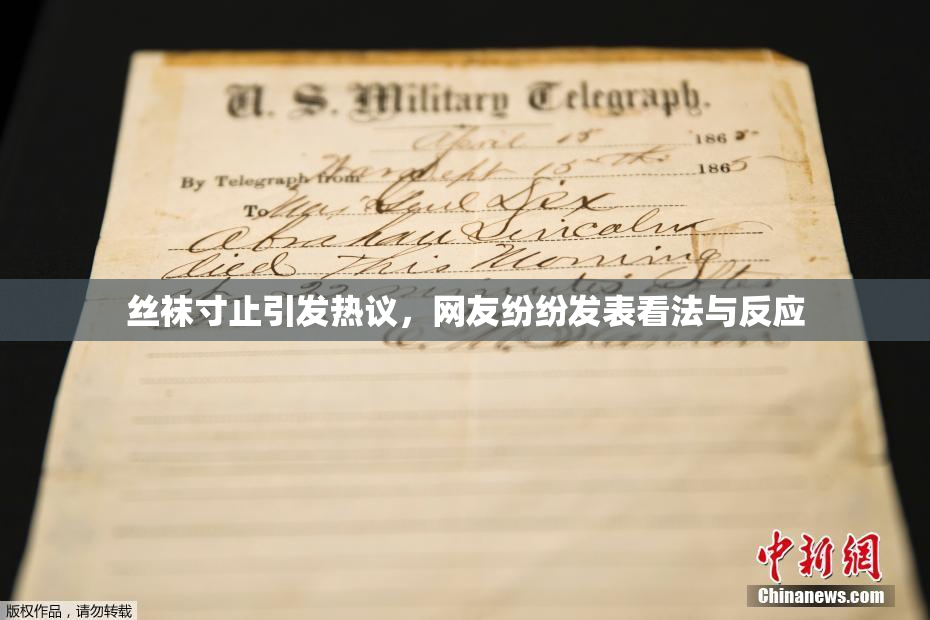 U. S. Military Telegraph.
April 15 1865
By Telegraph from War Dept 15th 1865
To Maj Genl Dix
Abraham Lincoln
died This Morning
22 minutes after
丝袜寸止引发热议，网友纷纷发表看法与反应
E. M. Stanton
中新網
Chinanews.com
版权作品，请勿转载